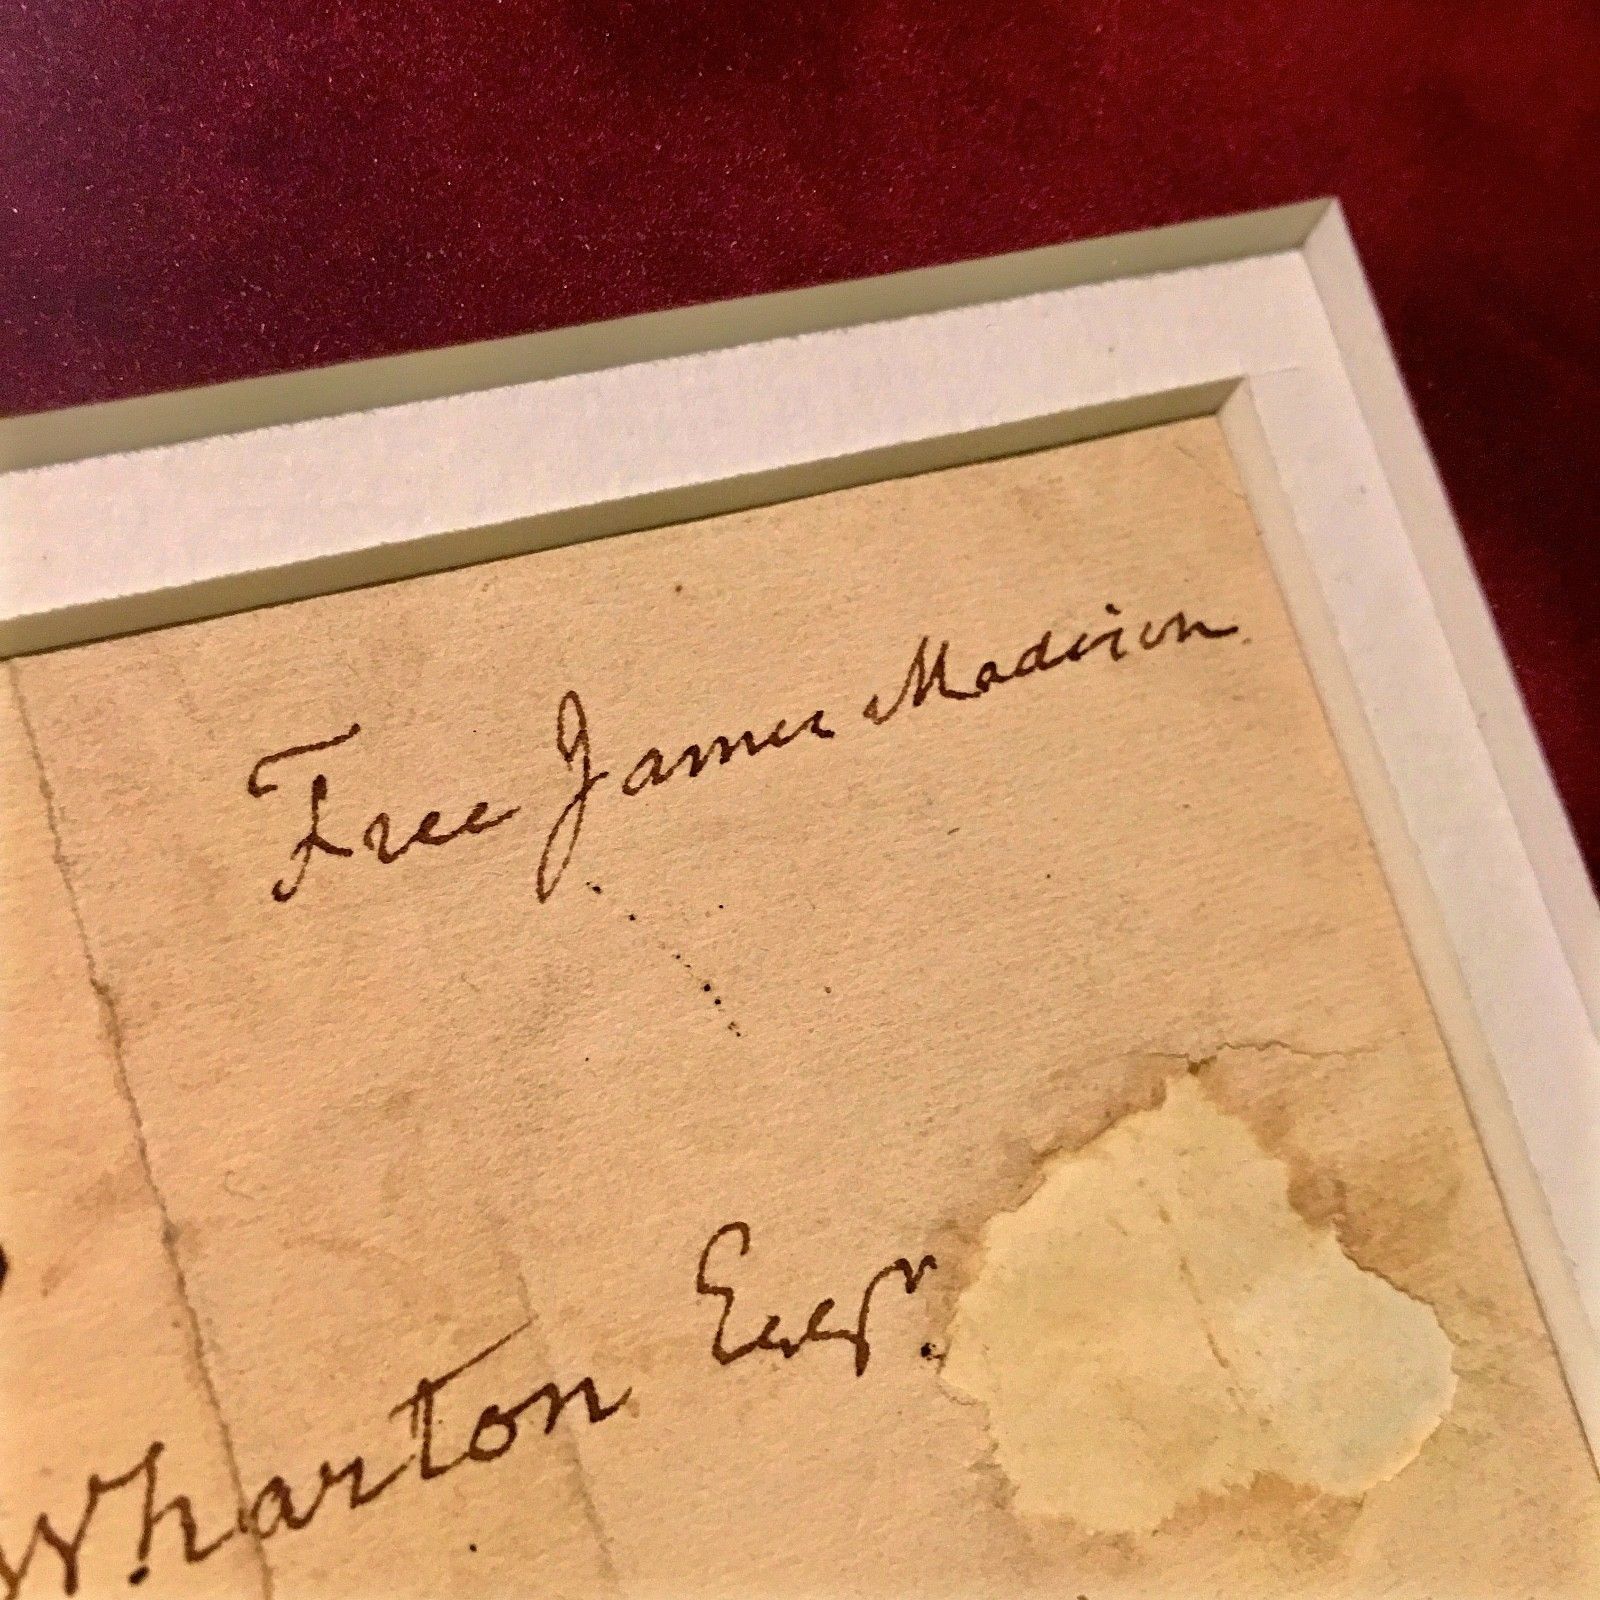 Free James Madison
Wharton Esqr.